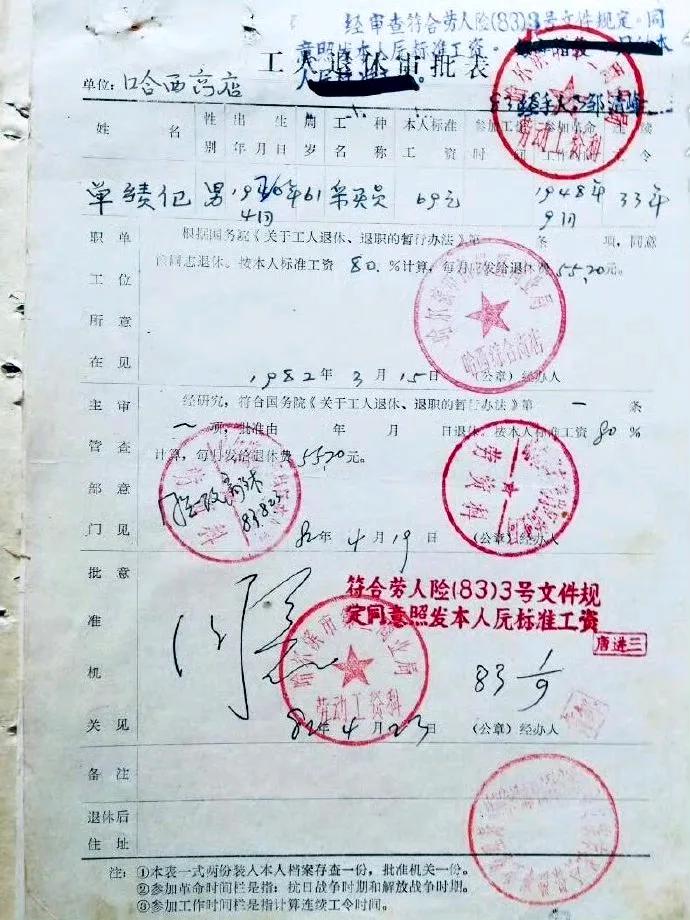 经审查符合劳人险(83)3号文件规定。同
意照发本人原标准工资。
工人退休审批表
单位：哈西药店
姓名 性别 出生年月日 周岁 工种名称 本人标准工资 参加工作时间 参加革命工作时间 连续工令
单绩仁 男 1920年4月 61 采买员 69元 1948年9月 33年
职工所在单位意见
根据国务院《关于工人退休、退职的暂行办法》第 条 项，同意
该同志退休。按本人标准工资 80 %计算，每月应发给退休费 55.20元。
哈西综合商店
1982年3月15日 （公章）经办人
主管部门审查意见
经研究，符合国务院《关于工人退休、退职的暂行办法》第 一 条
一 项，批准由 年 月 日退休。按本人标准工资80%
计算，每月发给退休费 55.20元。
劳资科
82年4月19日 （公章）经办人
批准机关意见
符合劳人险(83)3号文件规
定同意照发本人原标准工资
唐进三
劳动工资科
83 1/9
82年4月23日 （公章）经办人
备注
退休后住址
注：①本表一式两份装入本人档案存查一份，批准机关一份。
②参加革命时间栏是指：抗日战争时期和解放战争时期。
③参加工作时间栏是指计算连续工令时间。